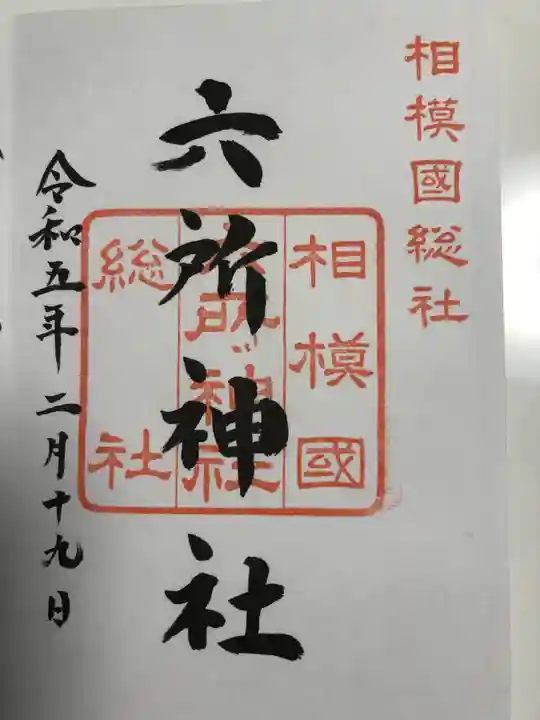 相模國総社
六所神社
相模國
六所神社
総社
令和五年二月十九日